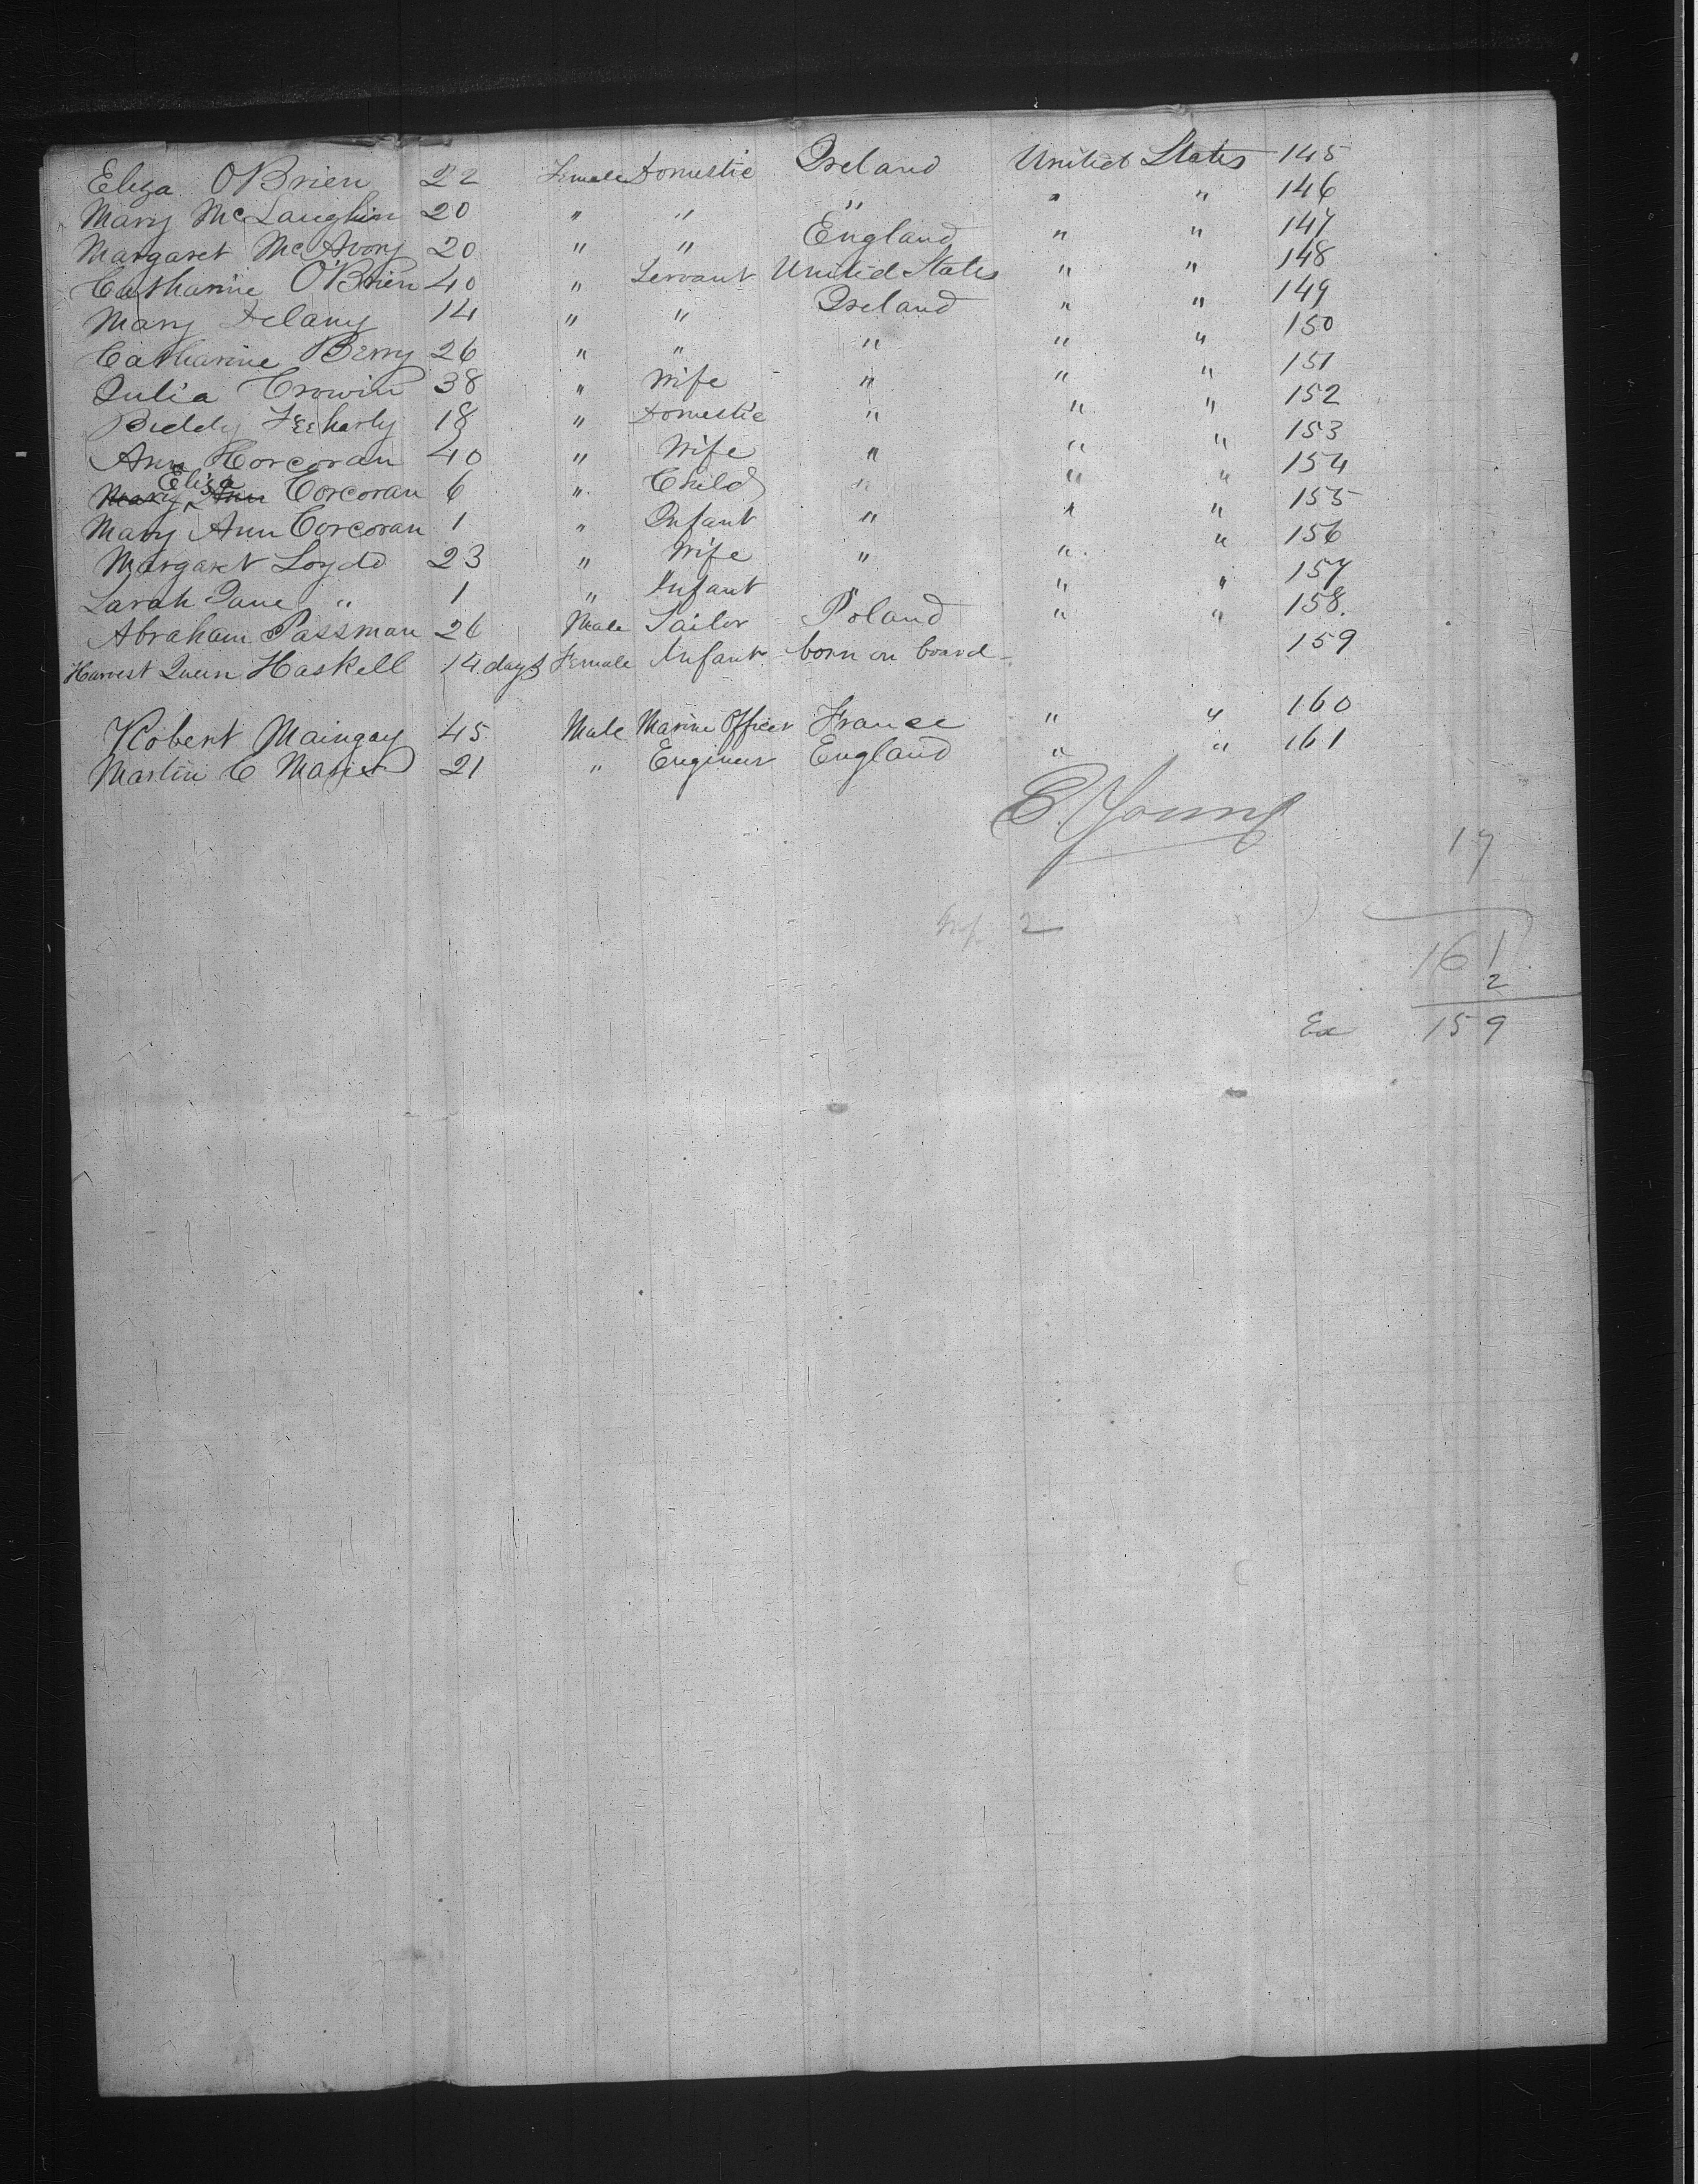 Eliza O'Brien 22 Female Domestic Ireland United States 145
Mary McLaughlin 20 " " " " " 146
Margaret McAvory 20 " " England " " 147
Catharine O'Brien 40 " Servant United States " " 148
Mary Delany 14 " " Ireland " " 149
Catharine Berry 26 " " " " " 150
Julia Crowin 38 " Wife " " " 151
Biddy Feeharty 18 " Domestic " " " 152
Ann Corcoran 40 " Wife " " " 153
Eliza
Mary Ann Corcoran 6 " Child " " " 154
Mary Ann Corcoran 1 " Infant " " " 155
Margaret Loydd 23 " Wife " " " 156
Sarah Jane " 1 " Infant " " " 157
Abraham Passman 26 Male Tailor Poland " " 158.
Harvest Queen Haskell 14 days Female Infant born on board 159
Robert Maingay 45 Male Marine Officer France " " 160
Martin C 21 " Engineer England " " 161
E. Young
17
Inf 2
161
2
Ex 159